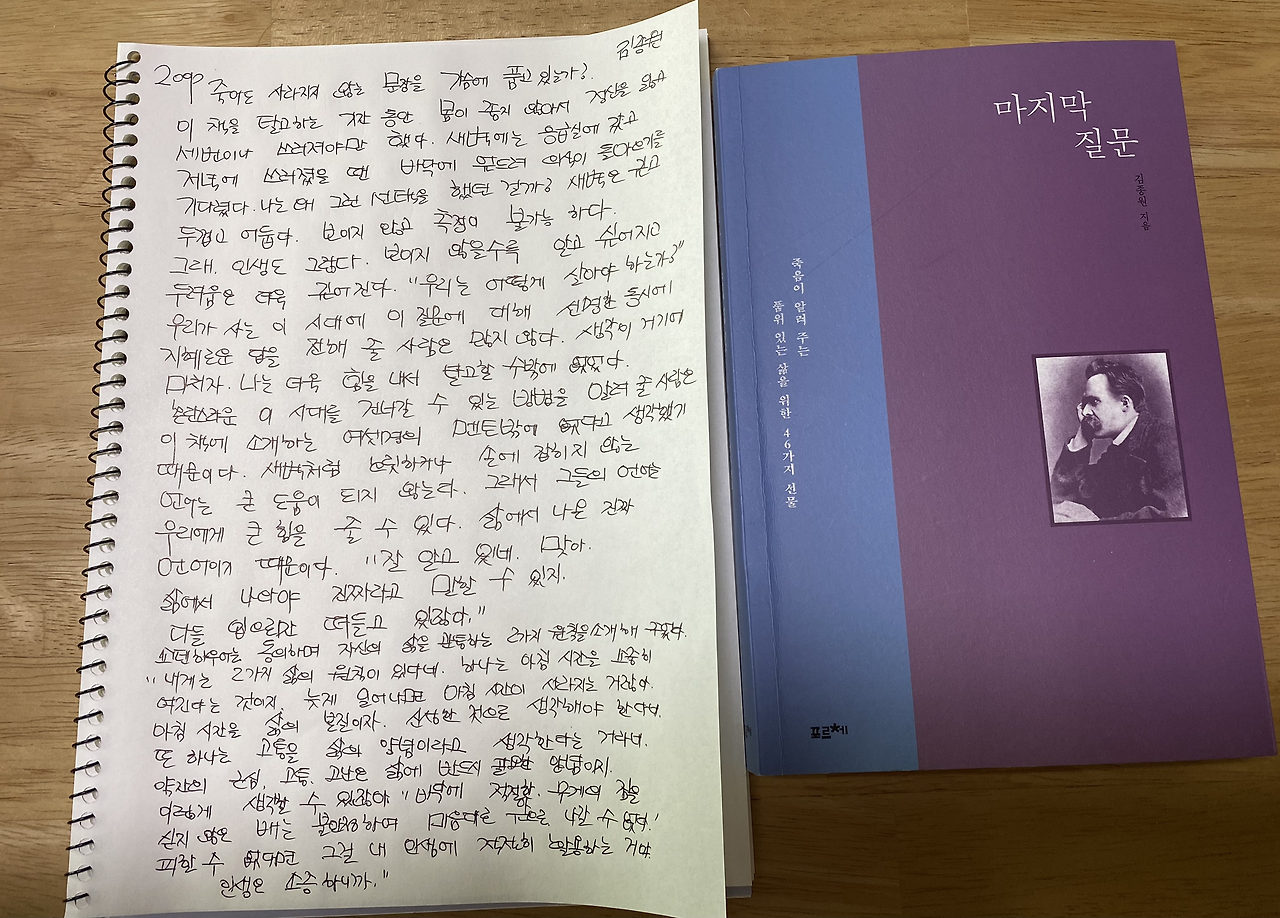 김종원
200p 죽어도 사라지지 않는 문장을 가슴에 품고 있는가?
이 책을 탈고하는 기간 동안 몸이 좋지 않아서 정신을 잃고
세번이나 쓰러져야만 했다. 새벽에는 응급실에 갔고
저녁에 쓰러졌을 땐 바닥에 엎드려 의식이 돌아오기를
기다렸다. 나는 왜 그런 선택을 했던 걸까? 새벽은 깊고
두껍고 어둡다. 보이지 않고 측정이 불가능 하다.
그래, 인생도 그렇다. 보이지 않을수록 알고 싶어지고
두려움은 더욱 깊어진다. "우리는 어떻게 살아야 하는가?"
우리가 사는 이 시대에 이 질문에 대해 선명한 동시에
지혜로운 답을 전해 줄 사람은 많지 않다. 생각이 거기에
미치자. 나는 더욱 힘을 내서 탈고할 수밖에 없었다.
혼란스러운 이 시대를 건너갈 수 있는 방법을 알려 줄 사람은
이 책에 소개하는 여섯명의 멘토밖에 없다고 생각했기
때문이다. 새벽처럼 또렷하거나 손에 잡히지 않는
언어는 큰 도움이 되지 않는다. 그래서 그들의 언어는
우리에게 큰 힘을 줄 수 있다. 삶에서 나온 진짜
언어이기 때문이다. "잘 알고 있네. 맞아.
삶에서 나와야 진짜라고 말할 수 있지.
다들 입으로만 떠들고 있잖아."
쇼펜하우어는 동의하며 자신의 삶을 관통하는 2가지 원칙을 소개해 주었다.
"내게는 2가지 삶의 원칙이 있다네. 하나는 아침 시간을 소중히
여긴다는 것이지. 늦게 일어나면 아침 시간이 사라지는 거잖아.
아침 시간은 삶의 본질이자. 신성한 것으로 생각해야 한다네.
또 하나는 고통을 삶의 양념이라고 생각한다는 거라네.
약간의 근심, 고통, 고난은 삶에 반드시 필요한 양념이지.
이렇게 생각할 수 있잖아 "바닥에 적절한 무게의 짐을
싣지 않은 배는 불안정하여 마음대로 앞으로 나갈 수 없어."
피할 수 없다면 그걸 내 인생에 적절히 활용하는 거야.
인생은 소중하니까."
마지막
질문
김종원 지음
죽음이 알려 주는
품위 있는 삶을 위한 46가지 선물
포르★체